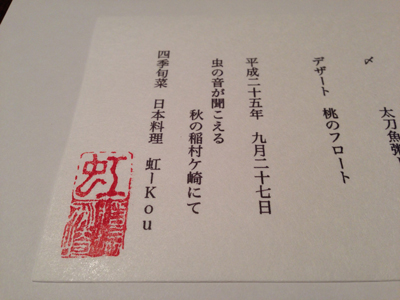 〆
太刀魚粥
デザート 桃のフロート
平成二十五年 九月二十七日
虫の音が聞こえる
秋の稲村ケ崎にて
四季旬菜 日本料理 虹-Kou
虹